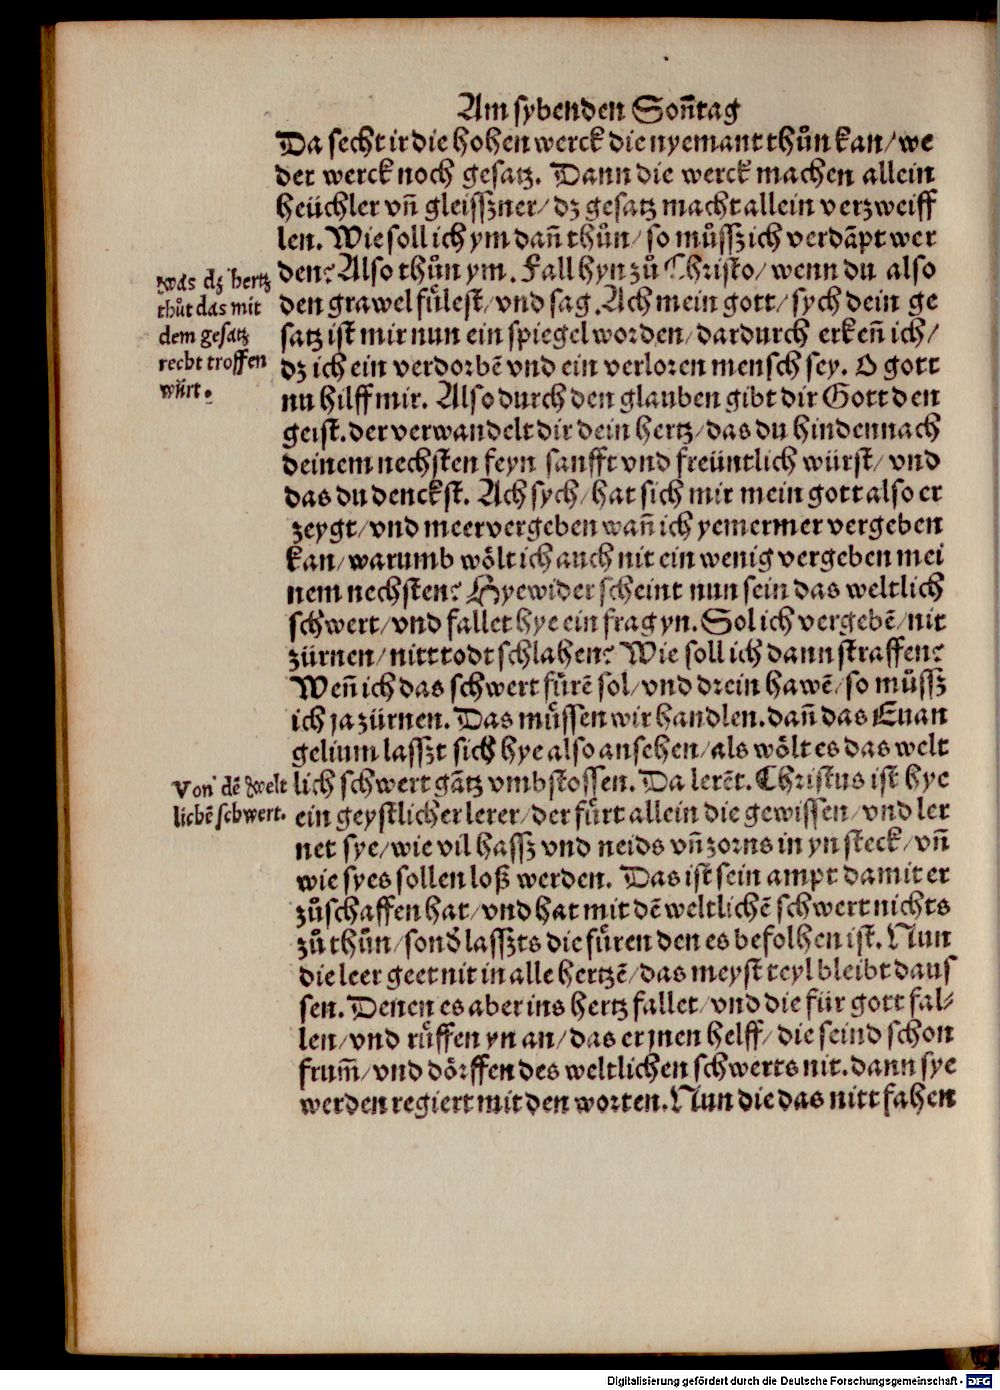 Am sybenden Soñtag
Da secht ir die hohen werck die nyemant thůn kan/ we
der werck noch gesatz. Dann die werck machen allein
heüchler vñ gleissʒner/ dz gesatz macht allein verzweiff
len. Wie soll ich ym dañ thůn/ so můssʒ ich verdãpt wer
den? Also thůn ym. Fall hyn zů Christo/ wenn du also
den grawel fülest/ vnd sag. Ach mein gott/ sych dein ge
satz ist mir nun ein spiegel worden/ dardurch erkeñ ich/
dz ich ein verdorbẽ vnd ein verloren mensch sey. O gott
nu hilff mir. Also durch den glauben gibt dir Gott den
geist. der verwandelt dir dein hertz/ das du hindennach
deinem nechsten feyn sanfft vnd freüntlich würst/ vnd
das du denckst. Ach sych/ hat sich mir mein gott also er
zeygt/ vnd meer vergeben wañ ich yemermer vergeben
kan/ warumb wölt ich auch nit ein wenig vergeben mei
nem nechsten? Hyewider scheint nun sein das weltlich
schwert/ vnd fallet hye ein frag yn. Sol ich vergebẽ/ nit
zürnen/ nitt todt schlahen? Wie soll ich dann straffen?
Weñ ich das schwert fürẽ sol/ vnd drein hawẽ/ so müssʒ
ich ja zürnen. Das müssen wir handlen. dañ das Euan
gelium lassʒt sich hye also ansehen/ als wölt es das welt
lich schwert gãtz vmbstossen. Da lerẽt. Christus ist hye
ein geystlicher lerer/ der fürt allein die gewissen/ vnd ler
net sye/ wie vil hassʒ vnd neids vñ zorns in yn steck/ vñ
wie sy es sollen loß werden. Das ist sein ampt damit er
zůschaffen hat/ vnd hat mit dẽ weltlichẽ schwert nichts
zů thůn/ sonď lassʒts die füren den es befolhen ist. Nun
die leer geet nit in alle hertzẽ/ das meyst teyl bleibt daus
sen. Denen es aber ins hertz fallet/ vnd die für gott fal-
len/ vnd rüffen yn an/ das er jnen helff/ die seind schon
frum̃/ vnd dörffen des weltlichen schwerts nit. dann sye
werden regiert mit den worten. Nun die das nitt fahen
Was dz hertz
thůt das mit
dem gesatz
recht troffen
würt.
Von dẽ Welt
lichẽ schwert.
Digitalisierung gefördert durch die Deutsche Forschungsgemeinschaft - DFG